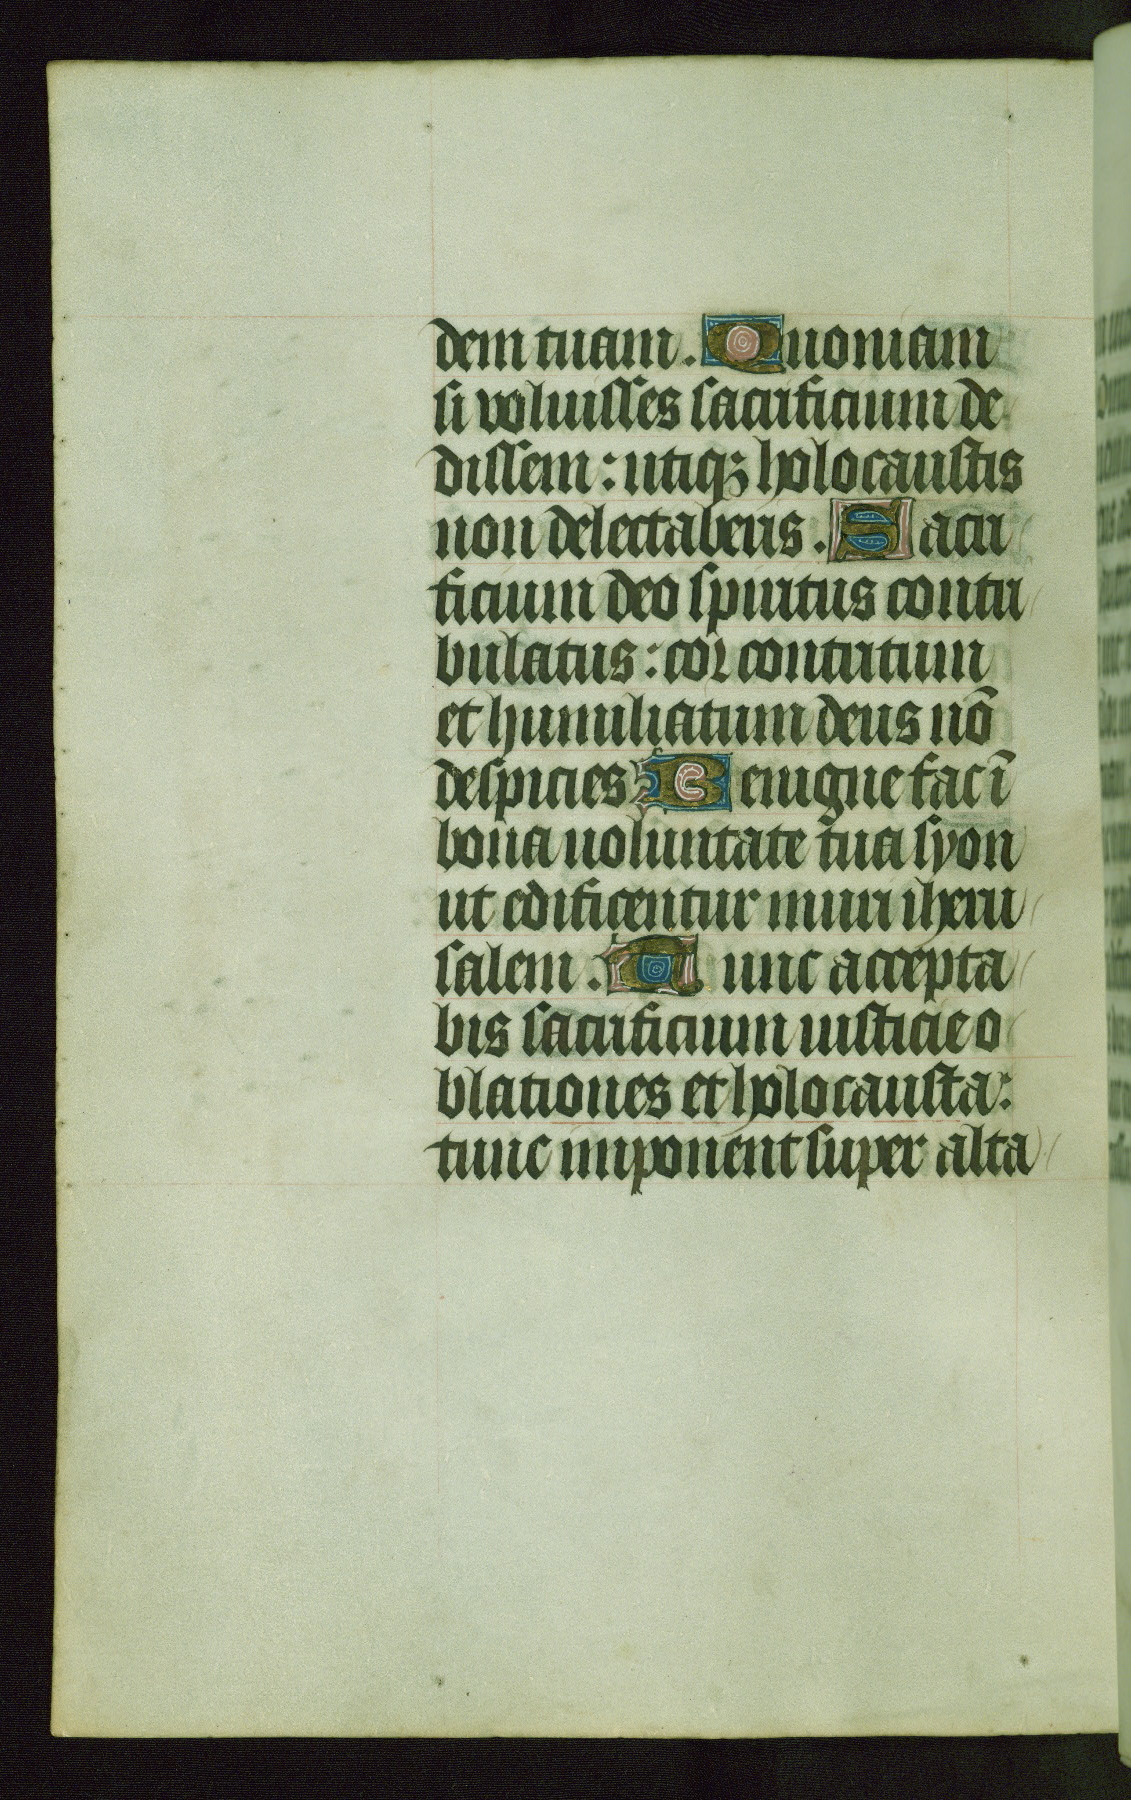 dem tuam. Quoniam
si voluisses sacrificium de
dissem: utiqꝫ holocaustis
non delectaberis. Sacri
ficium deo spiritus contri
bulatus: cor contritum
et humiliatum deus nō
despicies Benigne fac ī
bona uoluntate tua syon
ut edificentur muri iheru
salem. Tunc accepta
bis sacrificium iusticie o
blationes et holocausta:
tunc imponent super alta